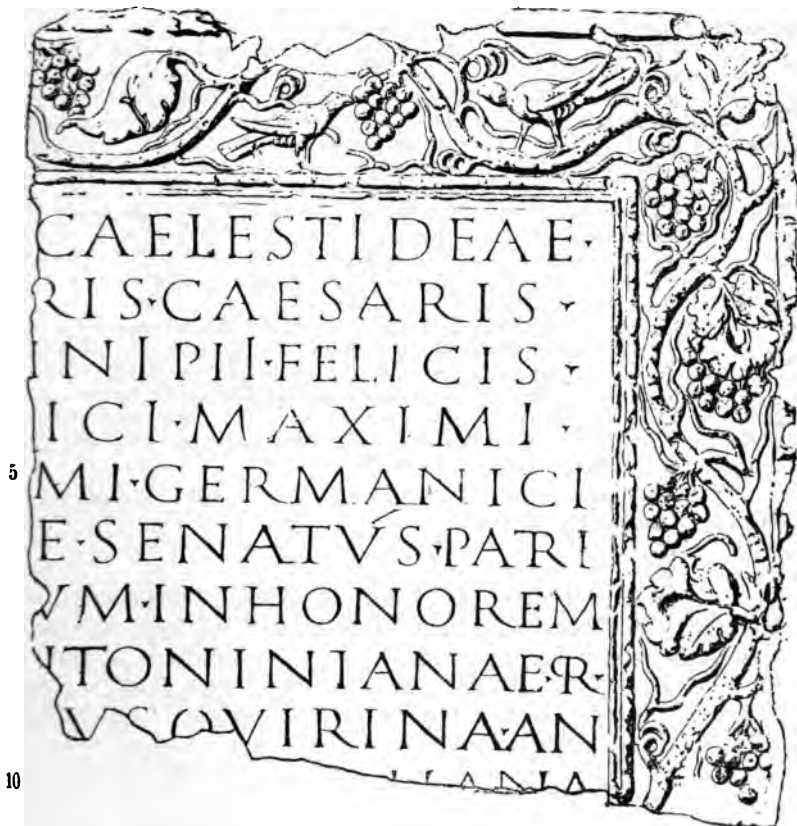 CAELESTI DEAE·
RIS·CAESARIS·
INI PII·FELICIS·
ICI·MAXIMI·
5 MI·GERMANICI
E·SENATVS·PARI
VM·IN HONOREM
NTONINIANAE·R·
VS QVIRINA·AN
10